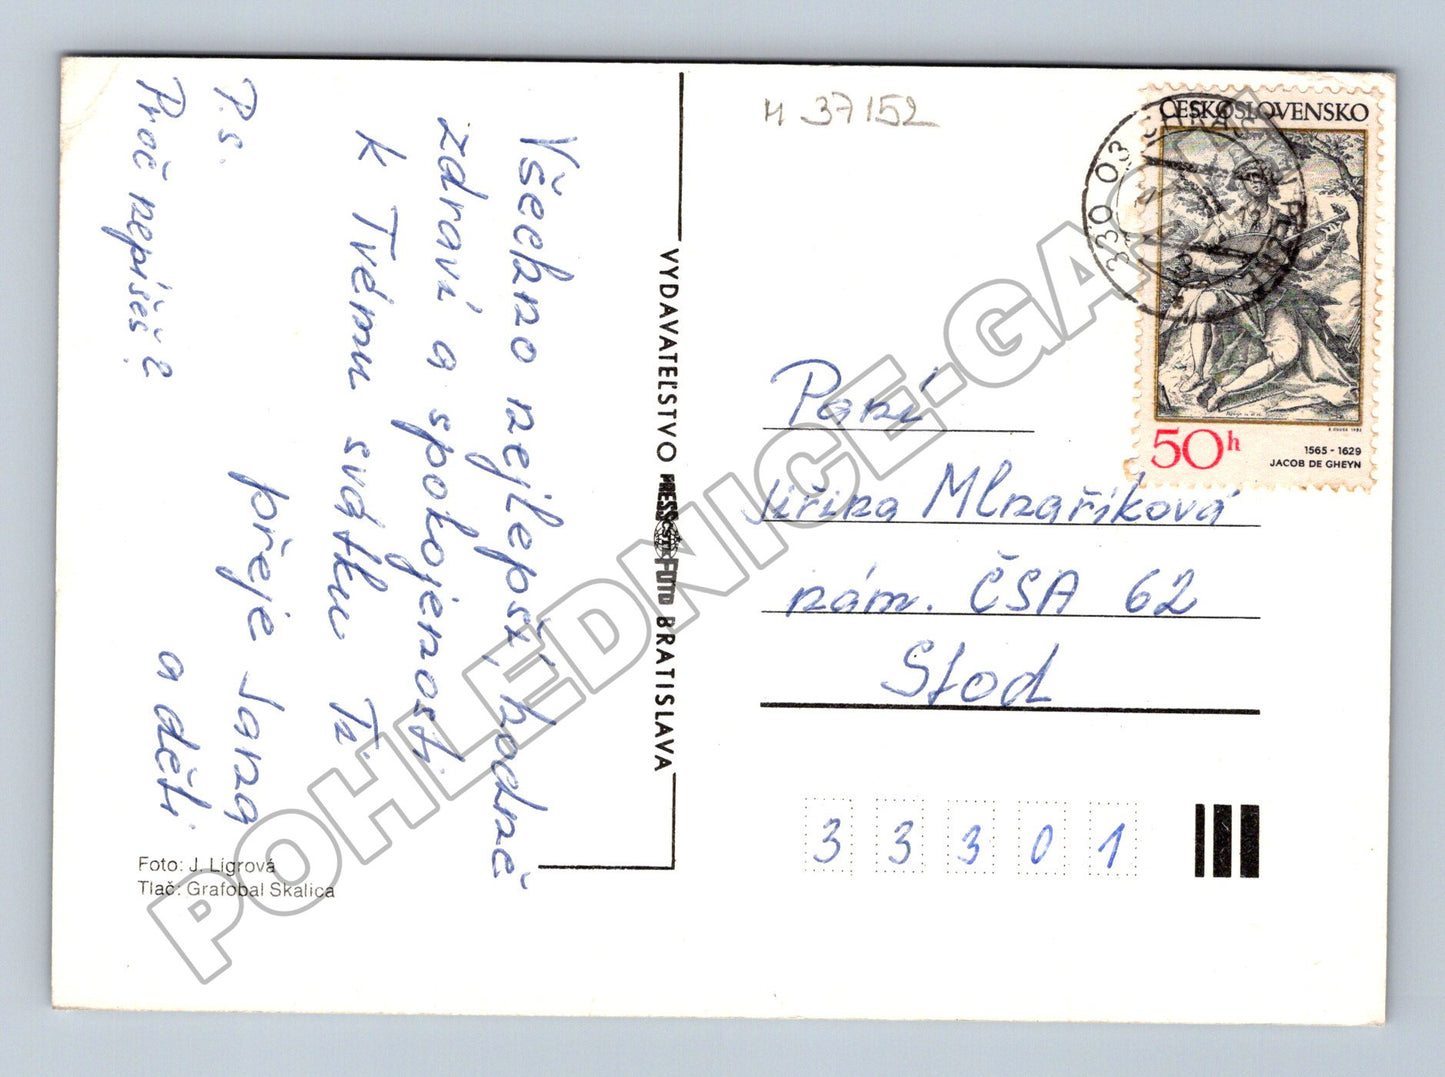 Všechno nejlepší, hodně
zdraví a spokojenosti
k Tvému svátku Ti
přeje Jana
a děti
P.s.
Proč nepíšeš?
Foto: J. Ligrová
Tlač: Grafobal Skalica
VYDAVATEĽSTVO PRESSFOTO BRATISLAVA
ČSTK
M 37152
ČESKOSLOVENSKO
50h
1565 - 1629
JACOB DE GHEYN
330 03
Paní
Jiřina Mlnaříková
nám. ČSA 62
Stod
33301
POHLEDNICE-GASCH